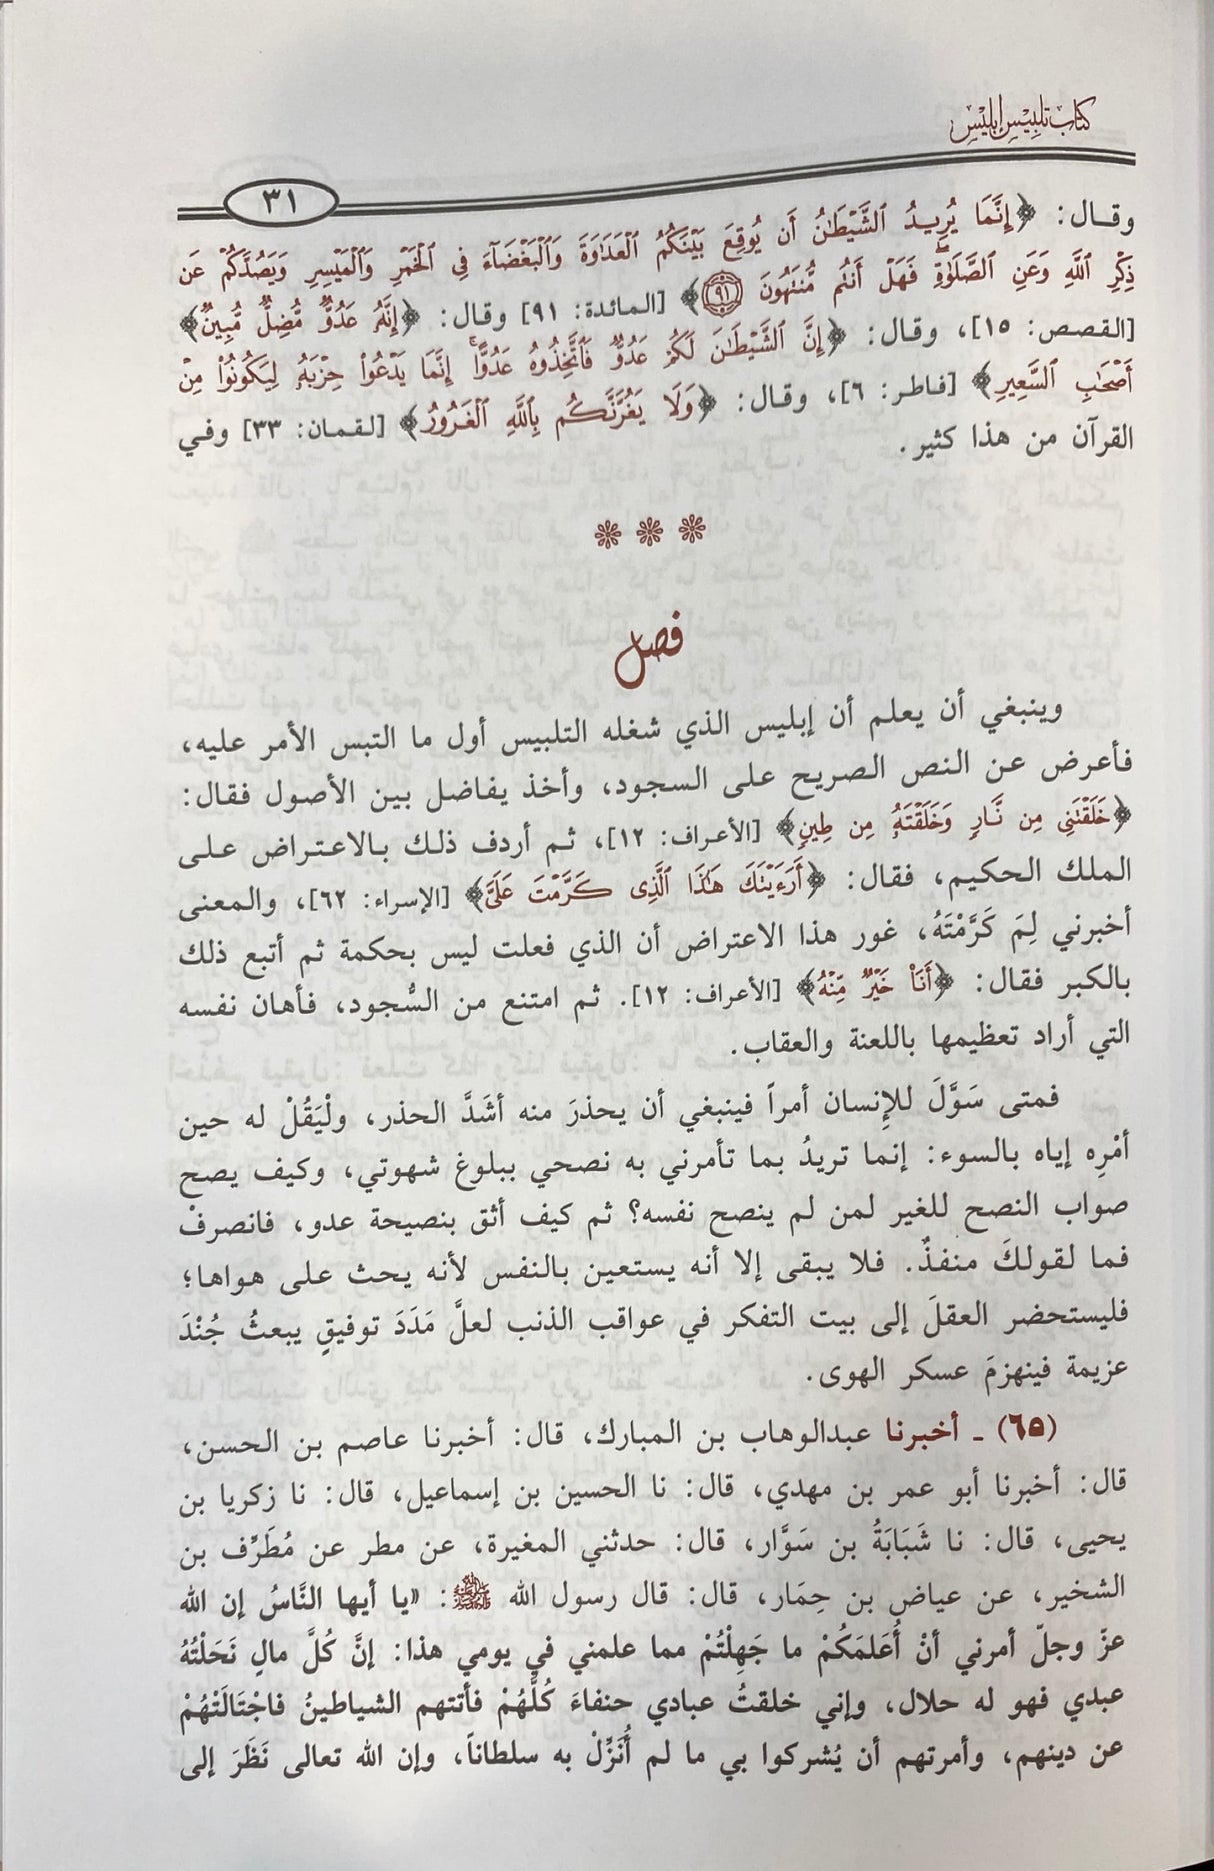 كتاب تلبيس إبليس
٣١
وقال: ﴿إِنَّمَا يُرِيدُ ٱلشَّيْطَٰنُ أَن يُوقِعَ بَيْنَكُمُ ٱلْعَدَٰوَةَ وَٱلْبَغْضَآءَ فِى ٱلْخَمْرِ وَٱلْمَيْسِرِ وَيَصُدَّكُمْ عَن
ذِكْرِ ٱللَّهِ وَعَنِ ٱلصَّلَوٰةِ ۖ فَهَلْ أَنتُم مُّنتَهُونَ ٩١﴾ [المائدة: ٩١] وقال: ﴿إِنَّهُۥ عَدُوٌّ مُّضِلٌّ مُّبِينٌ﴾
[القصص: ١٥]، وقال: ﴿إِنَّ ٱلشَّيْطَٰنَ لَكُمْ عَدُوٌّ فَٱتَّخِذُوهُ عَدُوًّا ۚ إِنَّمَا يَدْعُوا۟ حِزْبَهُۥ لِيَكُونُوا۟ مِنْ
أَصْحَٰبِ ٱلسَّعِيرِ﴾ [فاطر: ٦]، وقال: ﴿وَلَا يَغُرَّنَّكُم بِٱللَّهِ ٱلْغَرُورُ﴾ [لقمان: ٣٣] وفي
القرآن من هذا كثير.
فصل
وينبغي أن يعلم أن إبليس الذي شغله التلبيس أول ما التبس الأمر عليه،
فأعرض عن النص الصريح على السجود، وأخذ يفاضل بين الأصول فقال:
﴿خَلَقْتَنِى مِن نَّارٍ وَخَلَقْتَهُۥ مِن طِينٍ﴾ [الأعراف: ١٢]، ثم أردف ذلك بالاعتراض على
الملك الحكيم، فقال: ﴿أَرَءَيْتَكَ هَٰذَا ٱلَّذِى كَرَّمْتَ عَلَىَّ﴾ [الإسراء: ٦٢]، والمعنى
أخبرني لِمَ كَرَّمْتَهُ، غور هذا الاعتراض أن الذي فعلت ليس بحكمة ثم أتبع ذلك
بالكبر فقال: ﴿أَنَا۠ خَيْرٌ مِّنْهُ﴾ [الأعراف: ١٢]. ثم امتنع من السُّجود، فأهان نفسه
التي أراد تعظيمها باللعنة والعقاب.
فمتى سَوَّلَ للإِنسان أمراً فينبغي أن يحذرَ منه أشَدَّ الحذر، ولْيَقُلْ له حين
أمْرِه إياه بالسوء: إنما تريدُ بما تأمرني به نصحي ببلوغ شهوتي، وكيف يصح
صواب النصح للغير لمن لم ينصح نفسه؟ ثم كيف أثق بنصيحة عدو، فانصرفْ
فما لقولكَ منفذٌ. فلا يبقى إلا أنه يستعين بالنفس لأنه يحث على هواها؛
فليستحضر العقلَ إلى بيت التفكر في عواقب الذنب لعلَّ مَدَدَ توفيقٍ يبعثُ جُنْدَ
عزيمة فينهزمَ عسكر الهوى.
(٦٥) ـ أخبرنا عبدالوهاب بن المبارك، قال: أخبرنا عاصم بن الحسن،
قال: أخبرنا أبو عمر بن مهدي، قال: نا الحسين بن إسماعيل، قال: نا زكريا بن
يحيى، قال: نا شَبَابَةُ بن سَوَّار، قال: حدثني المغيرة، عن مطر عن مُطَرِّف بن
الشخير، عن عياض بن حِمَار، قال: قال رسول الله ﷺ: «يا أيها النَّاسُ إن الله
عزّ وجلّ أمرني أنْ أُعَلمَكُمْ ما جَهِلْتُمْ مما علمني في يومي هذا: إنَّ كُلَّ مالٍ نَحَلْتُهُ
عبدي فهو له حلال، وإني خلقتُ عبادي حنفاءَ كُلَّهُمْ فأتتهم الشياطينُ فاجْتَالَتْهُمْ
عن دينهم، وأمرتهم أن يُشركوا بي ما لم أُنَزِّلْ به سلطاناً، وإن الله تعالى نَظَرَ إلى